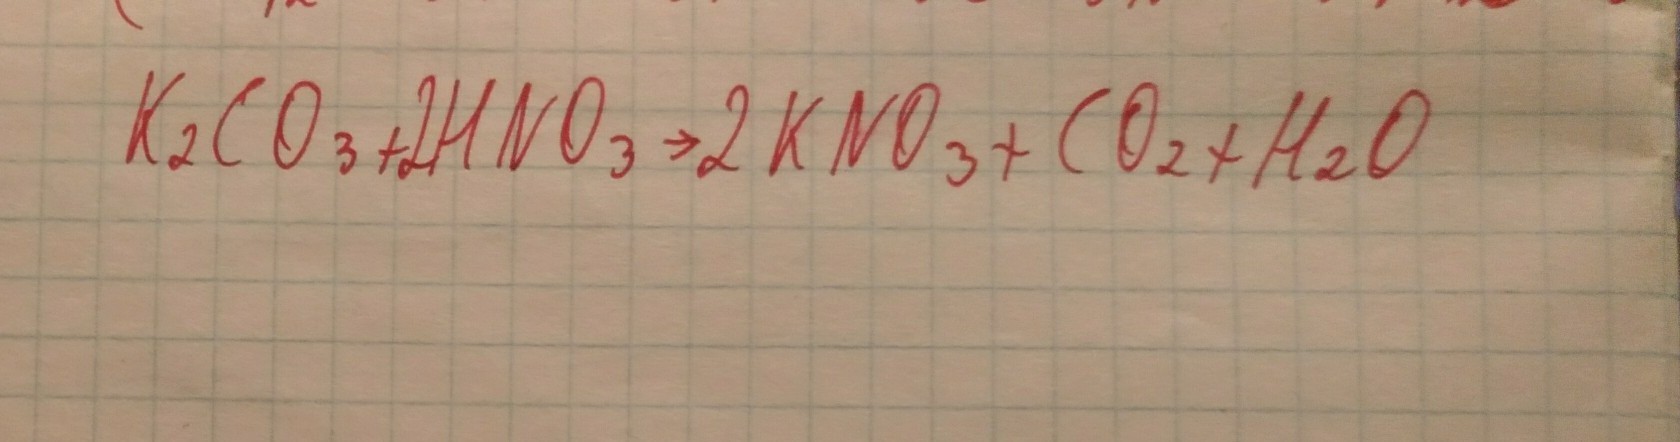 K₂CO₃+2HNO₃→2KNO₃+CO₂+H₂O